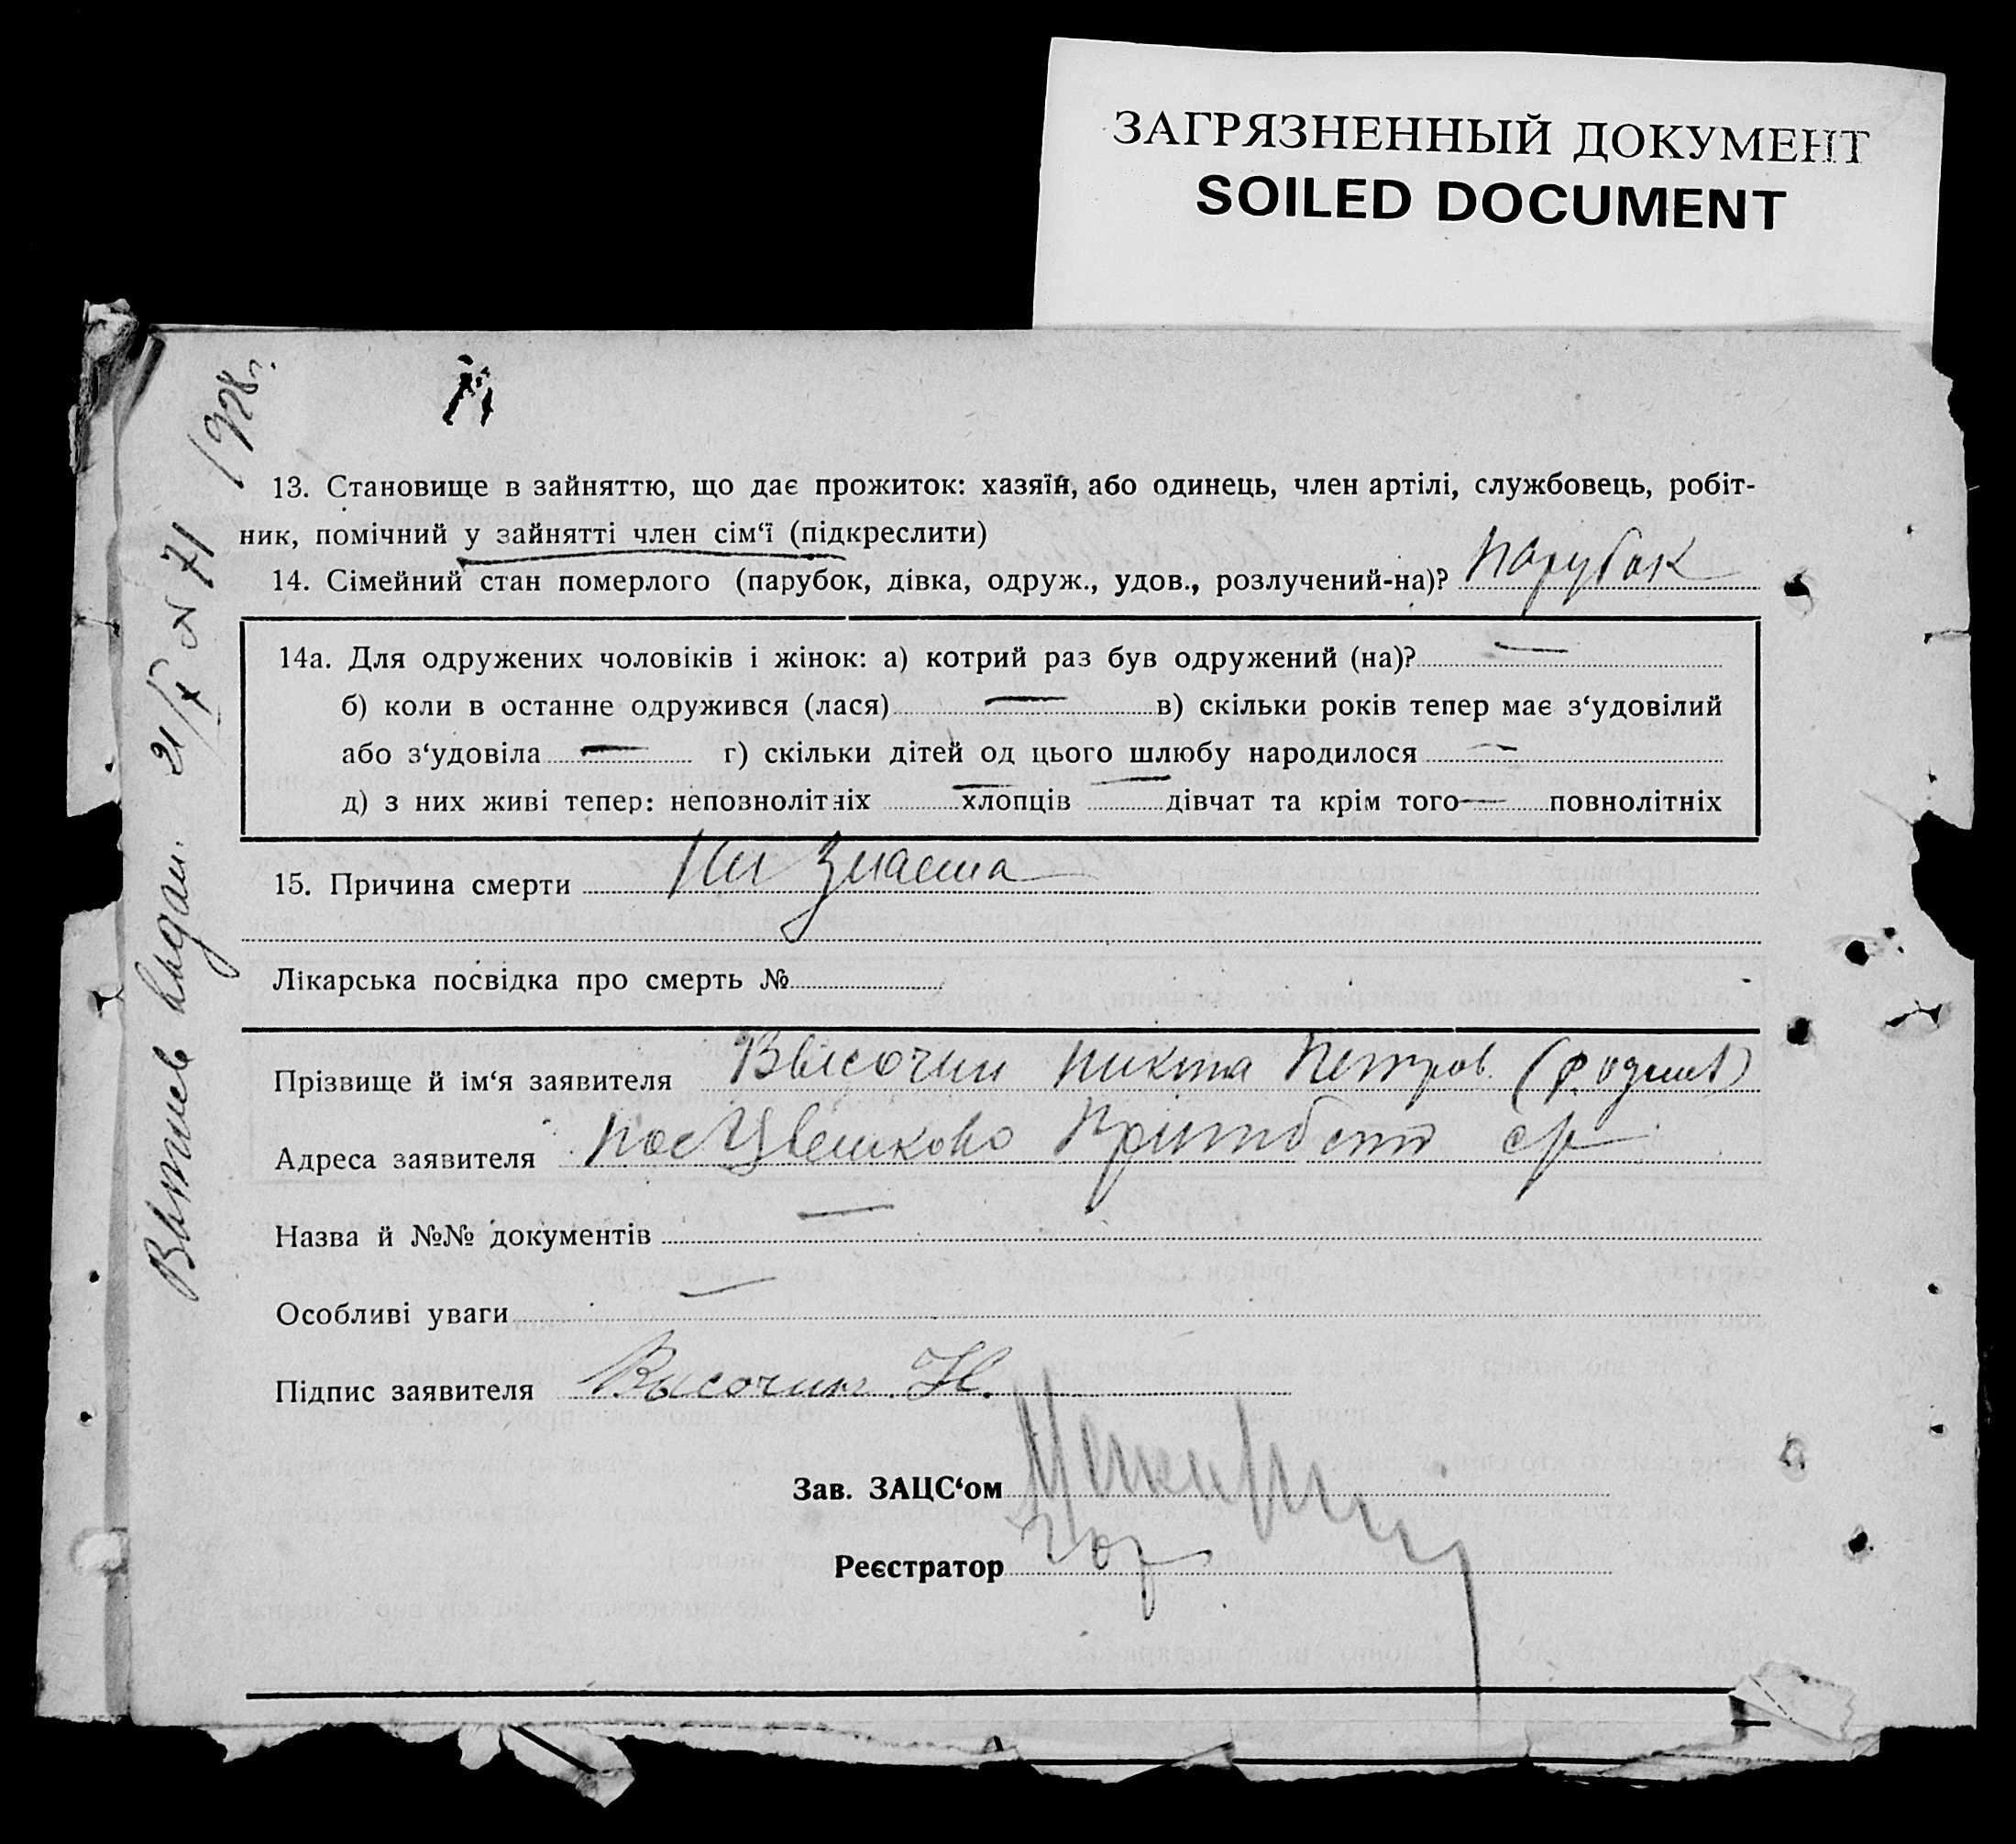 ЗАГРЯЗНЕННЫЙ ДОКУМЕНТ
SOILED DOCUMENT
13. Становище в зайняттю, що дає прожиток: хазяїн, або одинець, член артілі, службовець, робіт-
ник, помічний у зайнятті член сім‘ї (підкреслити)
14. Сімейний стан померлого (парубок, дівка, одруж., удов., розлучений-на)? Парубак
14а. Для одружених чоловіків і жінок: а) котрий раз був одружений (на)? —
б) коли в останне одружився (лася) — в) скільки років тепер має з‘удовілий
або з‘удовіла — г) скільки дітей од цього шлюбу народилося —
д) з них живі тепер: неповнолітніх — хлопців — дівчат та крім того — повнолітніх
15. Причина смерти Ни знаема
Лікарська посвідка про смерть №
Прізвище й ім‘я заявителя Высочин Никита Петров.
Адреса заявителя пос Цвешково
Назва й №№ документів —
Особливі уваги —
Підпис заявителя Высочин Н.
Зав. ЗАЦС‘ом
Реєстратор
Вытиев выдан. 21/X № 71 1928г.